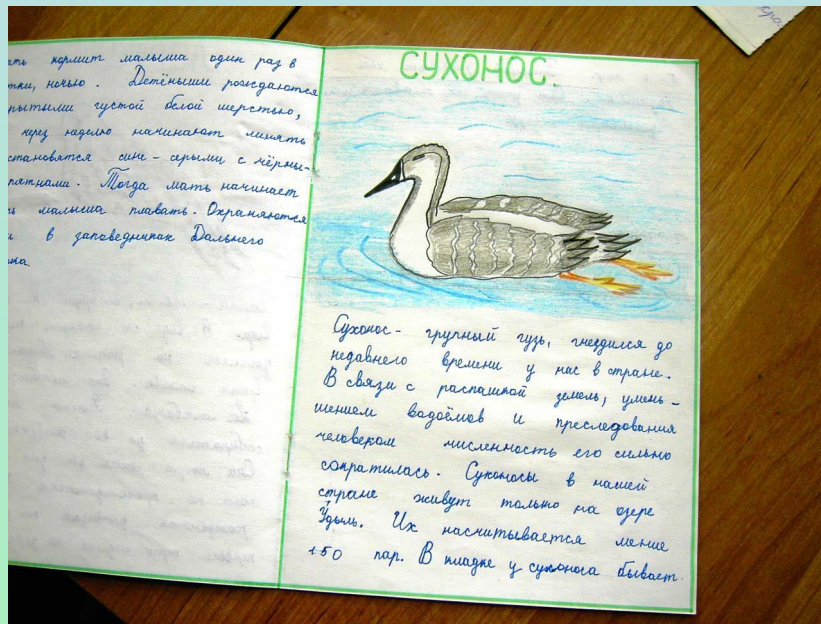 ать кормит малыша один раз в
тки, ночью. Детёныши рождаются
рытыми густой белой шерстью,
через неделю начинают линять
становятся сине-серыми с чёрны-
пятнами. Тогда мать начинает
ь малыша плавать. Охраняются
и в заповедниках Дальнего
ока.
СУХОНОС.
Сухонос- крупный гусь, гнездился до
недавнего времени у нас в стране.
В связи с распашкой земель, умень-
шением водоёмов и преследования
человеком численность его сильно
сократилась. Сухоносы в нашей
стране живут только на озере
Удыль. Их насчитывается менее
150 пар. В кладке у сухоноса бывает